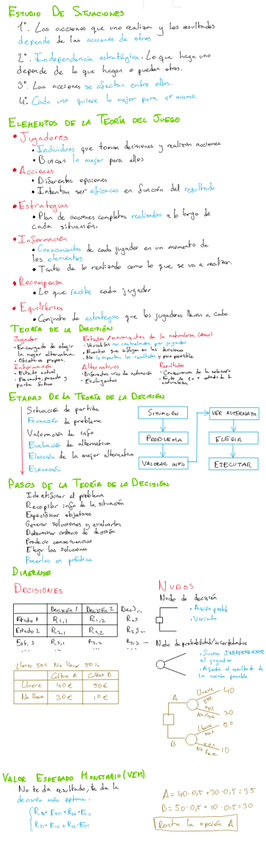 ESTUDIO DE SITUACIONES
1º. Las acciones que uno realizan y los resultados
depende de las acciones de otros
2º. Independencia estratégica. Lo que haga uno
depende de lo que hagan o puedan otros.
3º. Las acciones se afectan entre ellos.
4º. Cada uno quiere lo mejor para sí mismo.
ELEMENTOS DE LA TEORÍA DEL JUEGO
• Jugadores
• Individuos que toman decisiones y realizan acciones
• Buscan lo mejor para ellos
• Acciones
• Diferentes opciones
• Intentan ser eficaces en función del resultado
• Estrategias
• Plan de acciones completas realizadas a lo largo de
cada situación.
• Información
• Conocimientos de cada jugador en un momento de
los elementos
• Tanto de lo realizado como lo que se va a realizar.
• Recompensa
• Lo que recibe cada jugador
• Equilibrios
• Conjunto de estrategias que los jugadores llevan a cabo
TEORÍA DE LA DECISIÓN
Jugador
- Encargado de elegir
la mejor alternativa.
- Objetivos propios.
Información
- Estado actual
- Pasado, pasado y
Estados/
de la naturaleza
- Variables no controladas por jugador
- Eventos que influyen en las decisiones
Alternativas
- Diferentes
- Excluyentes
Resultados
ETAPAS DE LA TEORÍA DE LA DECISIÓN
Situación de partida
Formación de problema
Valoración de info
Evaluación de alternativa
Elección de la mejor alternativa
Ejecución
SITUACIÓN
PROBLEMA
VALORAR INFO
VER ALTERNATIVA
ELEGIR
EJECUTAR
PASOS DE LA TEORÍA DE LA DECISIÓN
Identificar el problema
Recopilar info de la situación
Especificar objetivos
Generar soluciones y evaluarlas
Determinar criterio de decisión
Predecir consecuencias
Elegir las soluciones
Ponerlas en práctica
DIAGRAMA
DECISIONES
Decisión 1 Decisión 2 Dec3...
Estado 1 R1,1 R1,2 R1,3
Estado 2 R2,1 R2,2 R2,3...
Est. 3 R3,1 R3,2 R3,3...
Llueve 50% No llueve 50%
Cultivo A Cultivo B
Llueve 40€ 50€
No llueve 30€ 10€
NUDOS
Nudo de decisión
Nudo de probabilidad/incertidumbre
• Suceso INDEPENDIENTE
al jugador
la acción posible
A
Llueve 40
50%
No llueve 30
B
Llueve 50
50%
No llueve 10
VALOR ESPERADO MONETARIO (VEM)
No te da resultado, te da la
decisión más óptima.
A = 40·0,5 + 30·0,5 = 35
B = 50·0,5 + 10·0,5 = 30
Renta la opción A